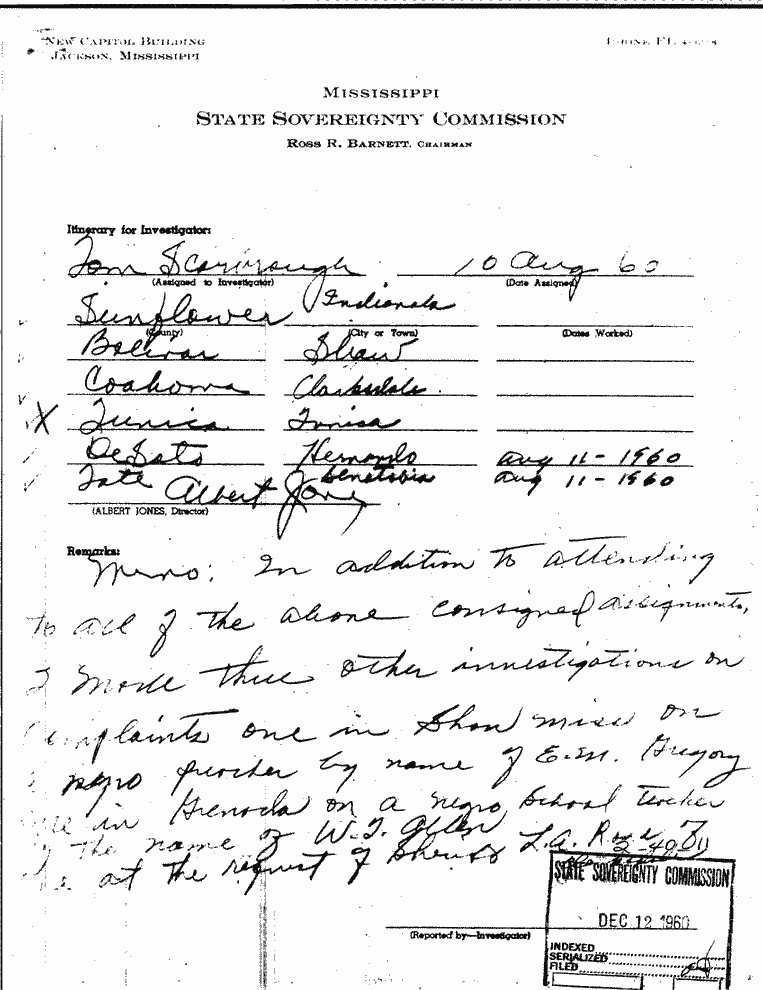 NEW CAPITOL BUILDING
JACKSON, MISSISSIPPI
PHONE, FL
MISSISSIPPI
STATE SOVEREIGNTY COMMISSION
ROSS R. BARNETT, CHAIRMAN
Itinerary for Investigator:
Tom Scarbrough 10 Aug 60
(Assigned to Investigator) (Date Assigned)
Sunflower Indianola
(County) (City or Town) (Dates Worked)
Bolivar Shaw
Coahoma Clarksdale
X Tunica Tunica
DeSoto Hernando Aug 11-1960
Tate Senatobia Aug 11-1960
Albert Jones
(ALBERT JONES, Director)
Remarks:
Memo: In addition to attending
to all of the above consigned assignments,
I made three other investigations on
complaints one in Shaw Miss on
negro by name of E.M. Gregory
in Grenada on a negro School teacher
the name of W.T. Allen
at the request of Sheriff L.A.
STATE SOVEREIGNTY COMMISSION
DEC 12 1960
(Reported by—Investigator)
INDEXED
SERIALIZED
FILED